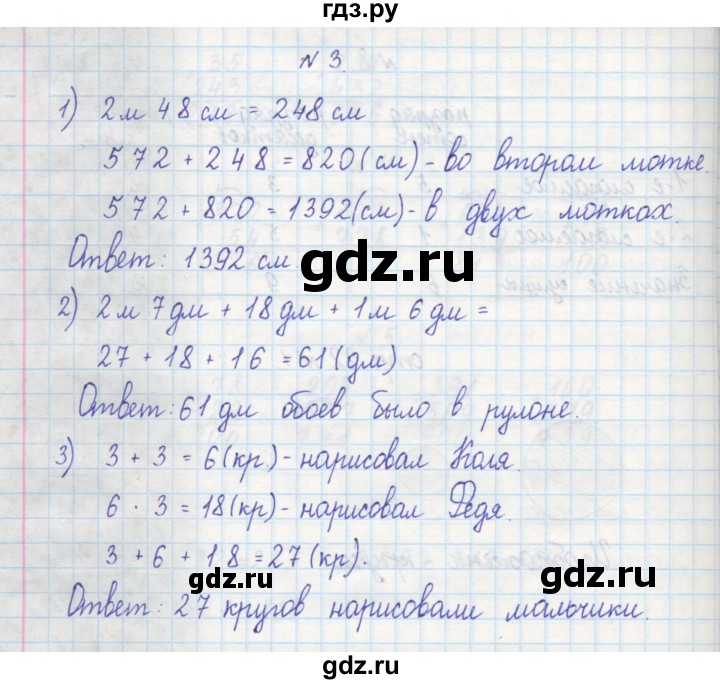 гдз.ру
N 3.
1) 2 м 48 см = 248 см
572 + 248 = 820 (см) - во втором мотке.
572 + 820 = 1392 (см) - в двух мотках.
Ответ: 1392 см
gdz.ru
2) 2 м 7 дм + 18 дм + 1 м 6 дм =
27 + 18 + 16 = 61 (дм)
Ответ: 61 дм обоев было в рулоне.
3) 3 + 3 = 6 (кр.) - нарисовал Коля.
6 · 3 = 18 (кр) - нарисовал Федя.
3 + 6 + 18 = 27 (кр).
gdz.ru
gdz.ru
Ответ: 27 кругов нарисовали мальчики.
gdz.ru